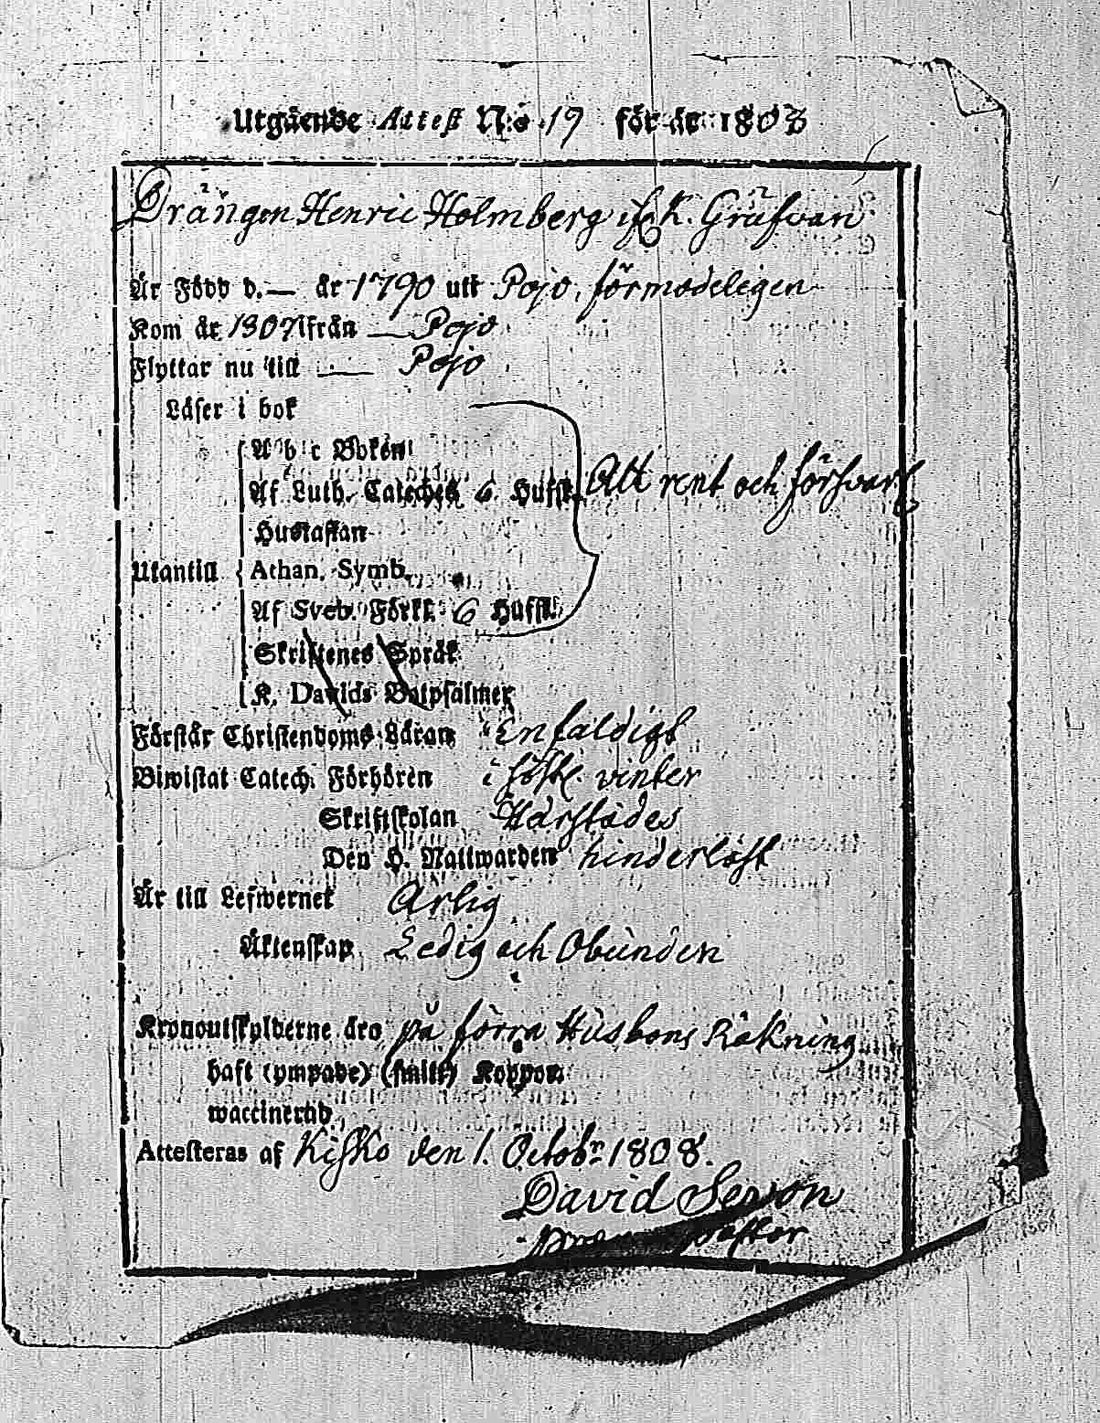 Utgående Attest N:o 19 för år 1808
Drängen Henric Holmberg ifr. K. Gräfvan
Är Född d. — år 1790 utt Pojo, förmodeligen
Kom år 1807 ifrån — Pojo
Flyttar nu till — Pojo
Läser i bok
A b c Boken
Af Luth. Cateches 6 Hufst. Allt rent och försvarl
Hustaflan
Utantill Athan. Symb.
Af Sveb. Förkl. 6 Hufst.
Skriftenes Språk
K. Davids Botpsalmer
Förstår Christendoms Läran Enfaldigt
Biwistat Catech. Förhören i höst. vinter
Skriftskolan Härstädes
Den H. Nattwarden hinderlöst
Är till Lefwernet Ärlig
Äktenskap Ledig och Obunden
Kronoutskylderne äro på förra Husbons Räkning
haft (ympade) (smitt) Koppor
waccinerad
Attesteras af Kisko den 1. Octobr 1808.
David